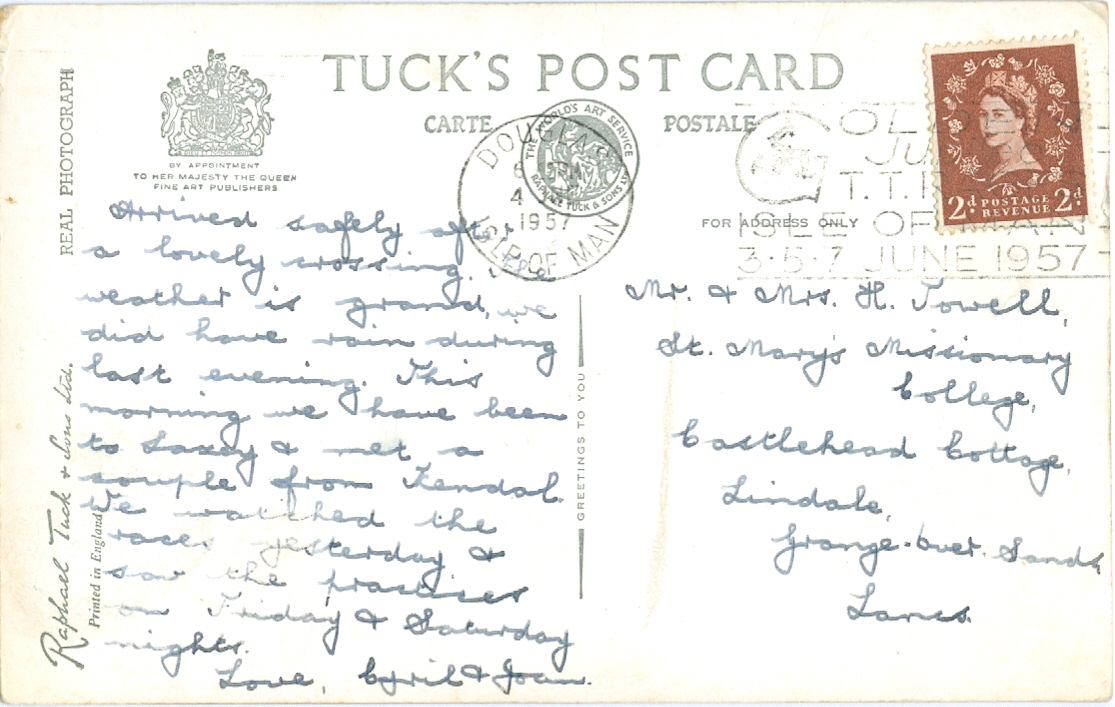 TUCK'S POST CARD
CARTE POSTALE
REAL PHOTOGRAPH
BY APPOINTMENT
TO HER MAJESTY THE QUEEN
FINE ART PUBLISHERS
THE WORLD'S ART SERVICE
RAPHAEL TUCK & SONS LTD
DOUGLAS
4
1957
ISLE OF MAN
T.T.
ISLE OF MAN
3·5·7 JUNE 1957
2d POSTAGE REVENUE 2d
FOR ADDRESS ONLY
Arrived safely after
a lovely crossing.
weather is grand, we
did have rain during
last evening. This
morning we have been
to Laxey & met a
couple from Kendal.
We watched the
races yesterday &
saw the practices
on Friday & Saturday
nights.
Love, Cyril & Joan.
GREETINGS TO YOU
Raphael Tuck & Sons Ltd.
Printed in England
Mr. & Mrs. H. Towell,
St. Mary's Missionary
College,
Castlehead Cottage,
Lindale,
Grange-over-Sands
Lancs.